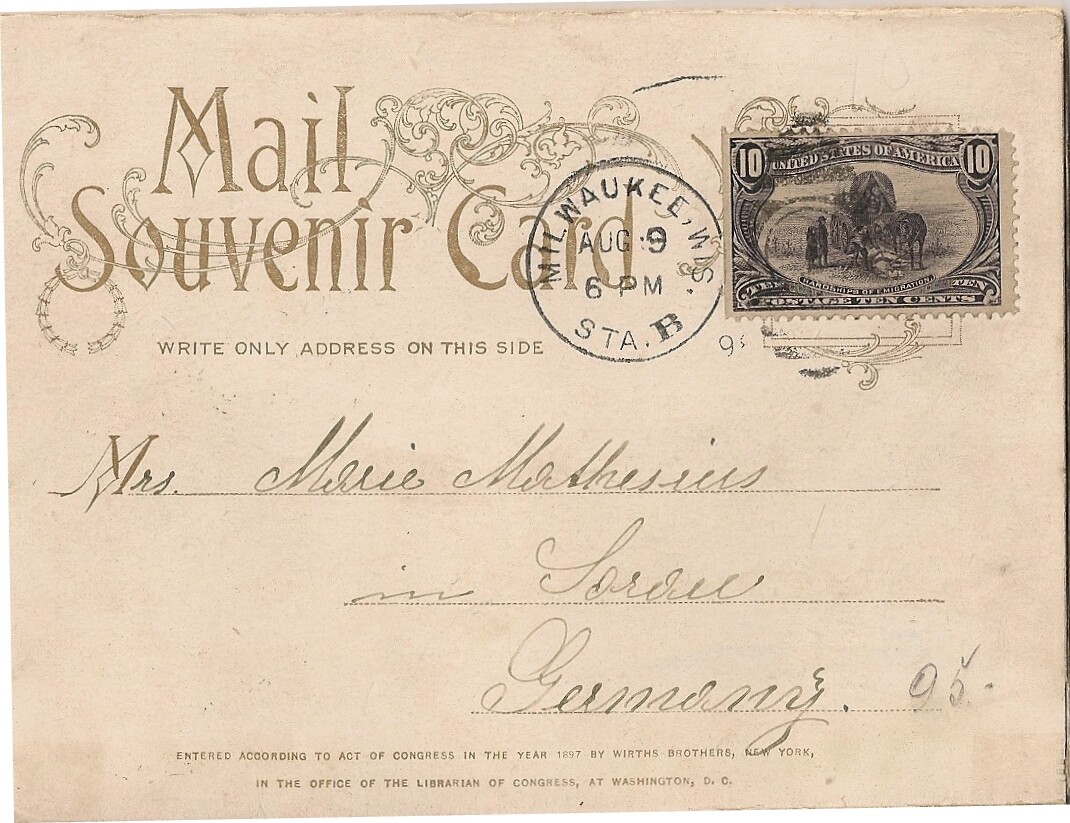 Mail
Souvenir Card
WRITE ONLY ADDRESS ON THIS SIDE
MILWAUKEE, WIS.
AUG 9
6 PM
STA. B
10 UNITED STATES OF AMERICA 10
HARDSHIPS OF EMIGRATION.
TEN TEN
POSTAGE TEN CENTS
Mrs. Marie Mathesius
in Sorau
Germany. 95.
ENTERED ACCORDING TO ACT OF CONGRESS IN THE YEAR 1897 BY WIRTHS BROTHERS, NEW YORK,
IN THE OFFICE OF THE LIBRARIAN OF CONGRESS, AT WASHINGTON, D. C.